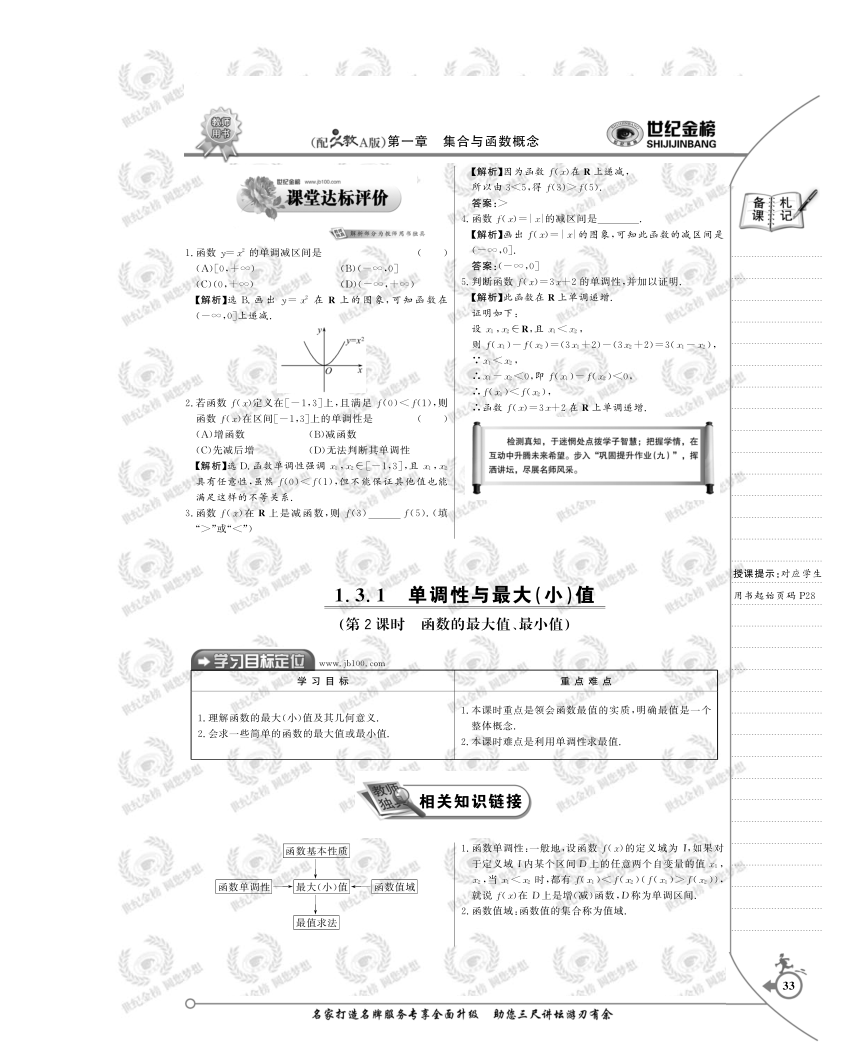 教师
用书
(配人教A版)第一章　集合与函数概念
世纪金榜
SHIJIJINBANG
世纪金榜 www.jb100.com
课堂达标评价
解析部分为教师用书独具
1.函数 y=x² 的单调减区间是 (　　)
(A)[0,+∞)　　(B)(-∞,0]
(C)(0,+∞)　　(D)(-∞,+∞)
【解析】选 B.画出 y=x² 在 R 上的图象,可知函数在
(-∞,0]上递减.
y
y=x²
O
x
2.若函数 f(x)定义在[-1,3]上,且满足 f(0)<f(1),则
函数 f(x)在区间[-1,3]上的单调性是 (　　)
(A)增函数　　(B)减函数
(C)先减后增　　(D)无法判断其单调性
【解析】选 D.函数单调性强调 x₁,x₂∈[-1,3],且 x₁,x₂
具有任意性,虽然 f(0)<f(1),但不能保证其他值也能
满足这样的不等关系.
3.函数 f(x)在 R 上是减函数,则 f(3)______ f(5).(填
“>”或“<”)
【解析】因为函数 f(x)在 R 上递减,
所以由 3<5,得 f(3)>f(5).
答案:>
4.函数 f(x)=|x|的减区间是________.
【解析】画出 f(x)=|x|的图象,可知此函数的减区间是
(-∞,0].
答案:(-∞,0]
5.判断函数 f(x)=3x+2 的单调性,并加以证明.
【解析】此函数在 R 上单调递增.
证明如下:
设 x₁,x₂∈R,且 x₁<x₂,
则 f(x₁)-f(x₂)=(3x₁+2)-(3x₂+2)=3(x₁-x₂),
∵x₁<x₂,
∴x₁-x₂<0,即 f(x₁)-f(x₂)<0,
∴f(x₁)<f(x₂),
∴函数 f(x)=3x+2 在 R 上单调递增.
检测真知，于迷惘处点拨学子智慧；把握学情，在
互动中升腾未来希望。步入“巩固提升作业(九)”，挥
洒讲坛，尽展名师风采。
备课札记
授课提示:对应学生
用书起始页码 P28
1.3.1　单调性与最大(小)值
(第 2 课时　函数的最大值、最小值)
学习目标定位 www.jb100.com
学 习 目 标
重 点 难 点
1.理解函数的最大(小)值及其几何意义.
2.会求一些简单的函数的最大值或最小值.
1.本课时重点是领会函数最值的实质,明确最值是一个
整体概念.
2.本课时难点是利用单调性求最值.
教师
独具
相关知识链接
函数基本性质
函数单调性
最大(小)值
函数值域
最值求法
1.函数单调性:一般地,设函数 f(x)的定义域为 I,如果对
于定义域 I 内某个区间 D 上的任意两个自变量的值 x₁,
x₂,当 x₁<x₂ 时,都有 f(x₁)<f(x₂)(f(x₁)>f(x₂)),
就说 f(x)在 D 上是增(减)函数,D 称为单调区间.
2.函数值域:函数值的集合称为值域.
33
名家打造名牌服务专享全面升级　助您三尺讲坛游刃有余